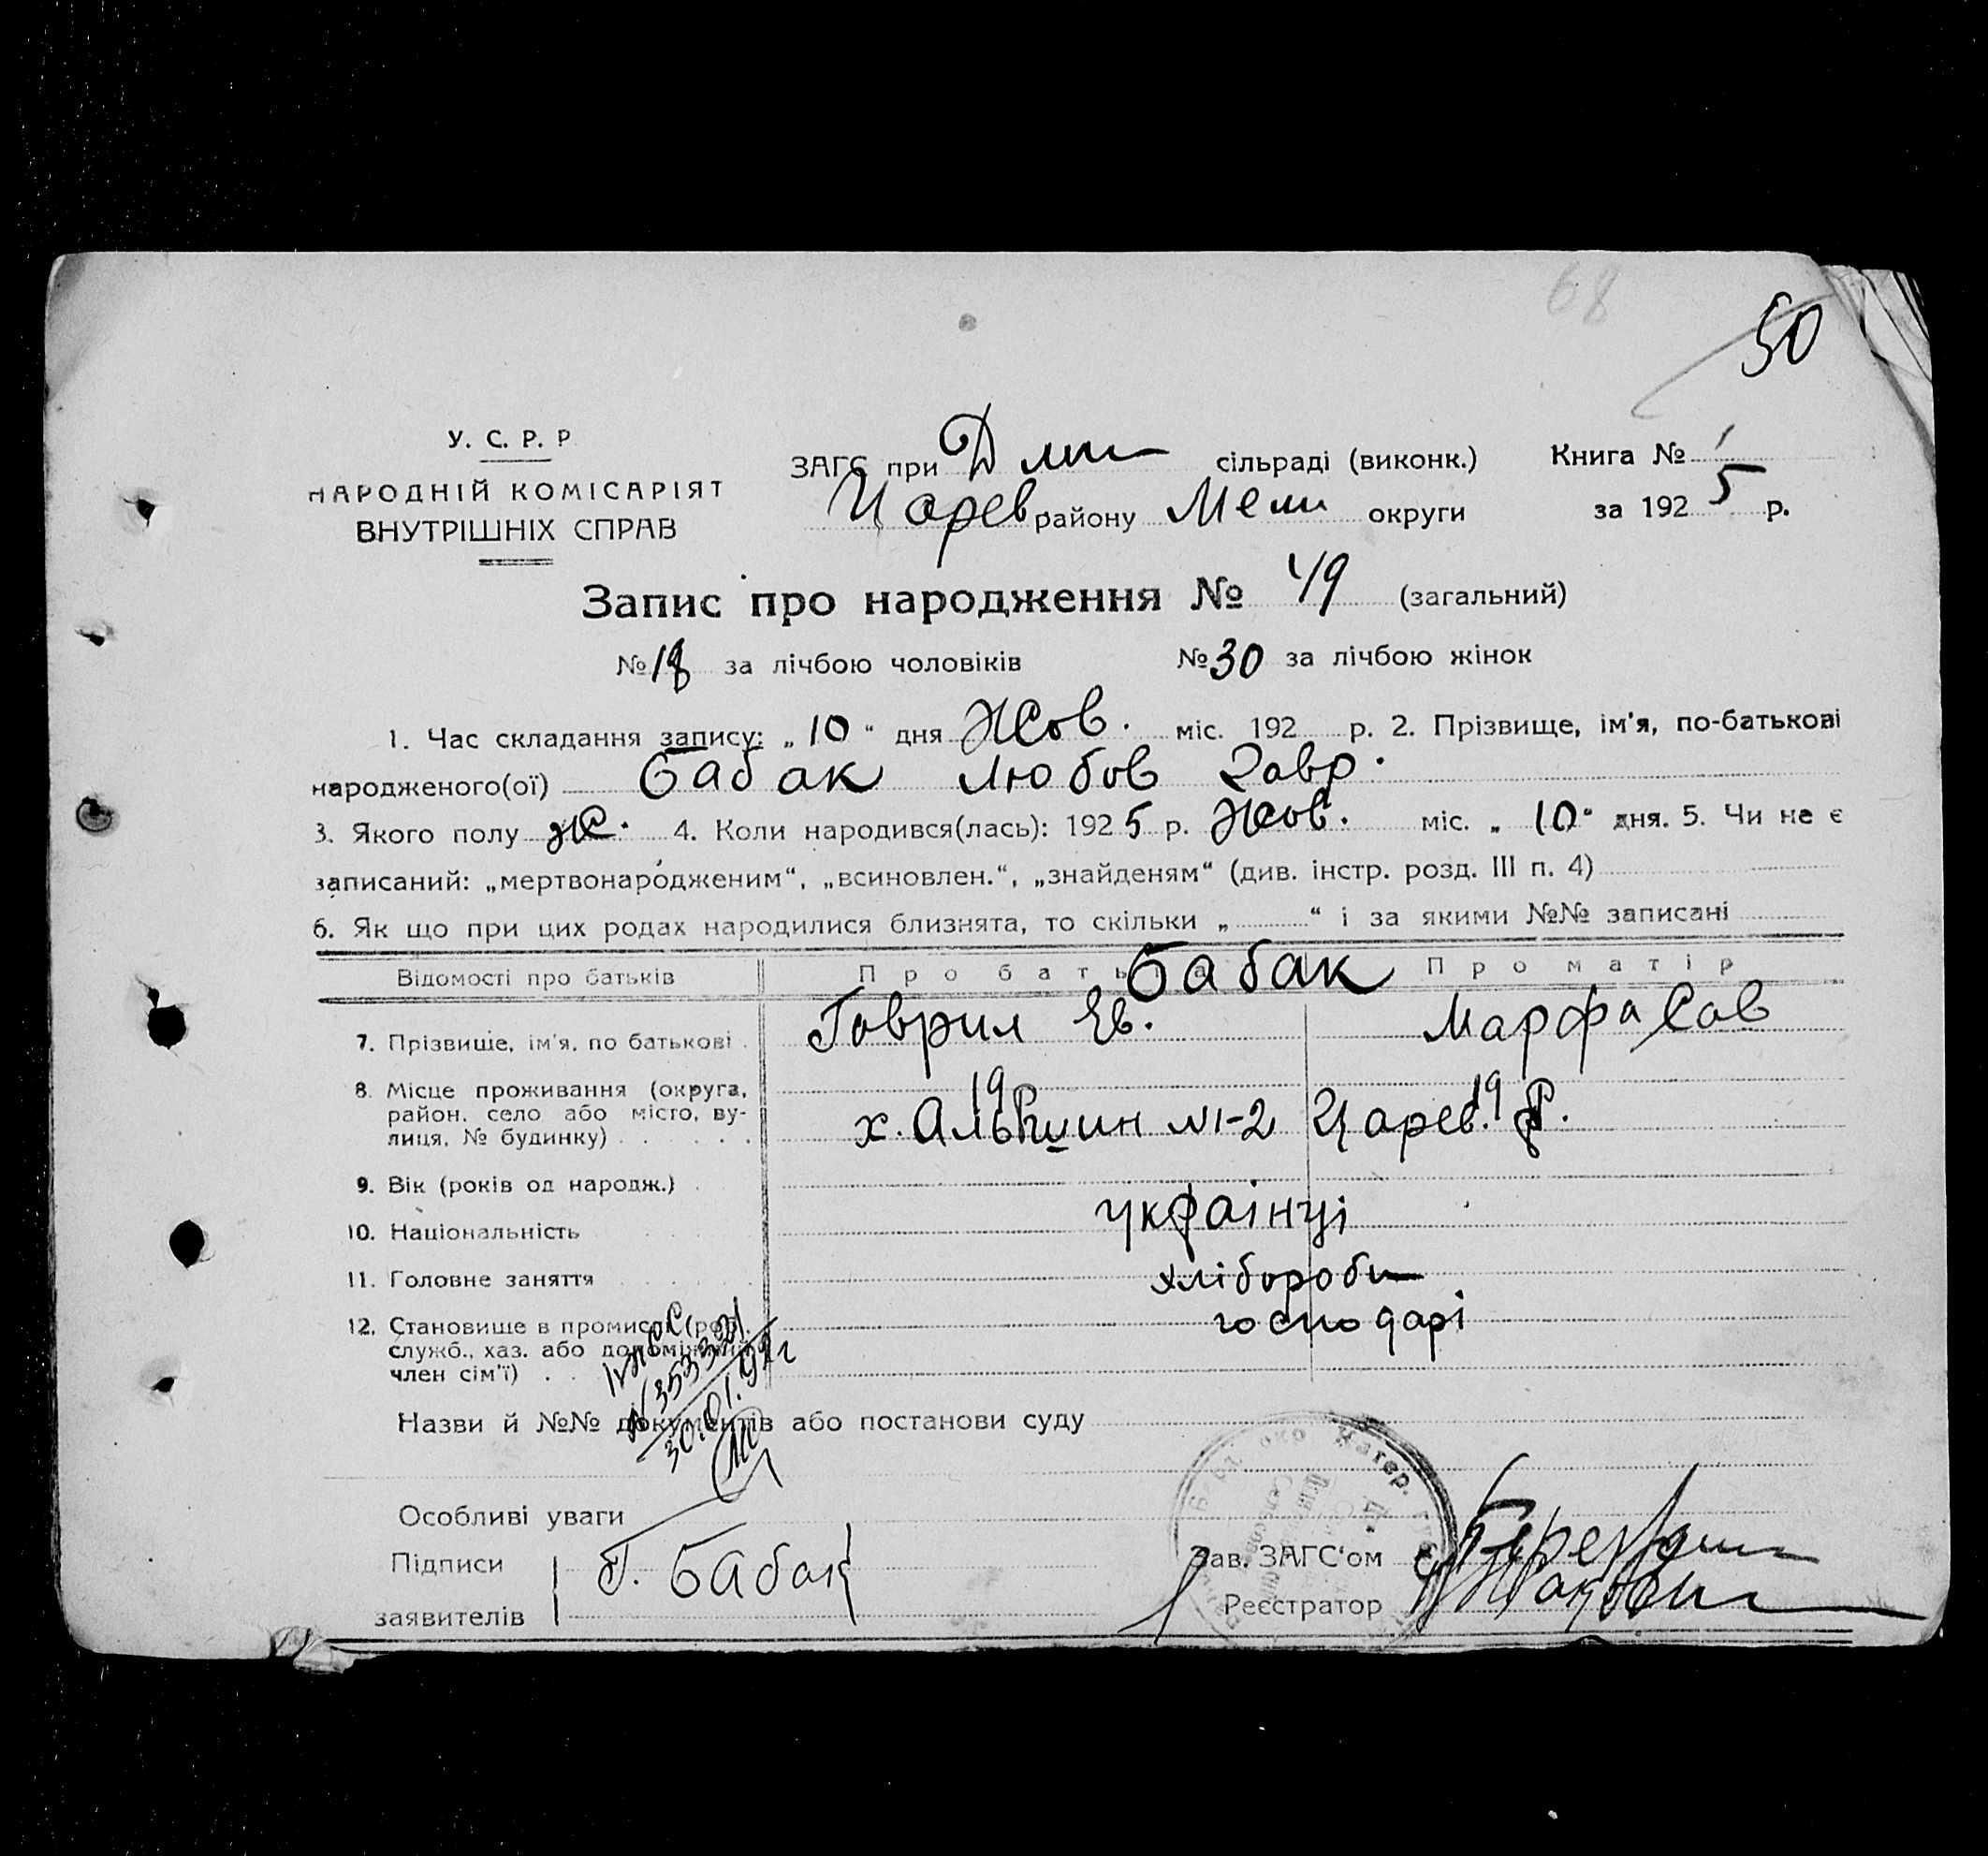 68
50
У. С. Р. Р
НАРОДНІЙ КОМІСАРІЯТ
ВНУТРІШНІХ СПРАВ
ЗАГС при Дми сільраді (виконк.) Книга № 1
Царев району Мели округи за 192 5 р.
Запис про народження № 49 (загальний)
№ 18 за лічбою чоловіків № 30 за лічбою жінок
1. Час складання запису: „ 10 “ дня Жов. міс. 192 р. 2. Прізвище, ім'я, по-батькові
народженого(ої) Бабак Любов Гавр.
3. Якого полу ж. 4. Коли народився(лась): 192 5 р. Жов. міс. „ 10 “ дня. 5. Чи не є
записаний: „мертвонародженим“, „всиновлен.“, „знайденям“ (див. інстр. розд. III п. 4)
6. Як що при цих родах народилися близнята, то скільки „ “ і за якими №№ записані
Відомості про батьків Про батька Бабак Про матір
7. Прізвище, ім'я, по батькові Гаврил Ев. Марфа Сав
8. Місце проживання (округа, 19 19
район, село або місто, ву- х. Альшин №1-2 Царев. Р.
лиця, № будинку)
9. Вік (років од народж.)
10. Національність українці
11. Головне заняття хлібороби
12. Становище в промислі (роб., господарі
служб., хаз. або допоміжний
член сім'ї)
N 353321
30.01.92г
Назви й №№ документів або постанови суду
Особливі уваги
Підписи Г. Бабак Зав. ЗАГС'ом
заявителів Реєстратор